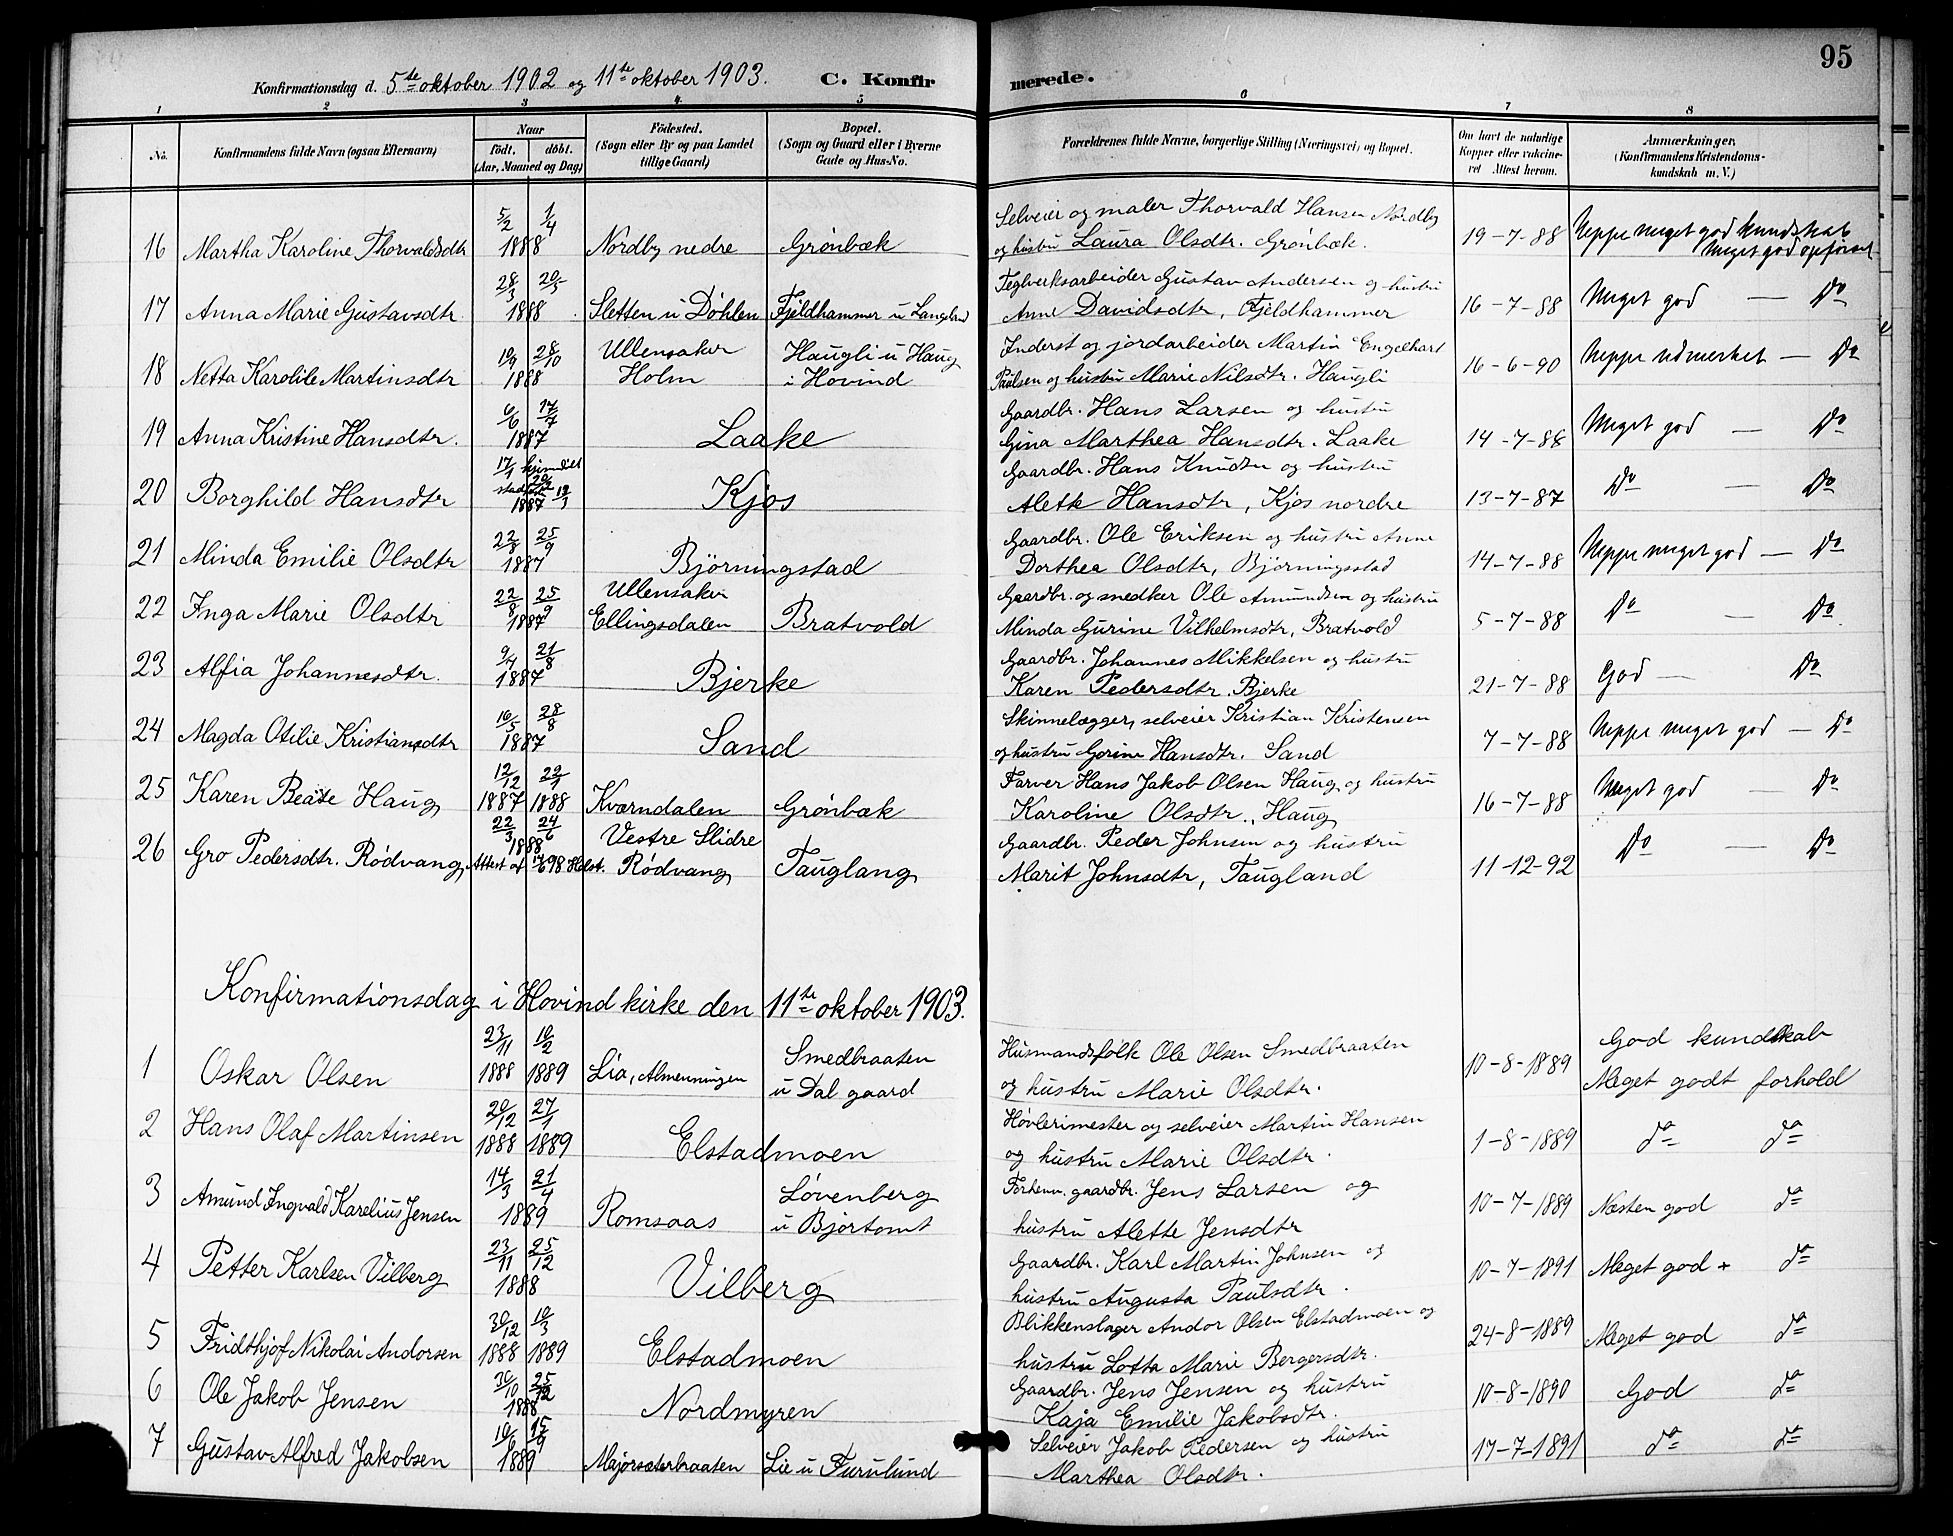 95
Konfirmationsdag d. 5te oktober 1902 og 11te oktober 1903. C. Konfirmerede.
1 2 3 4 5 6 7 8
No. Konfirmandens fulde Navn (ogsaa Efternavn) Naar født. døbt. (Aar, Maaned og Dag) Fødested. (Sogn eller By og paa Landet tillige Gaard) Bopæl. (Sogn og Gaard eller i Byerne Gade og Hus-No. Forældrenes fulde Navne, borgerlige Stilling (Næringsvei) og Bopæl. Om havt de naturlige Kopper eller vaccineret Attest herom. Anmærkninger. (Konfirmandens Kristendomskundskab m. V.)
5/2 1/4 Selveier og maler Thorvald Hansen Nordby
16 Martha Karoline Thorvaldsdtr 1888 Nordby nedre Grønbæk og hustru Laura Olsdtr. Grønbæk. 19-7-88 Neppe meget god kundskab Meget god opførsel
28/3 20/5 Teglverksarbeider Gustav Andersen og hustru
17 Anna Marie Gustavsdtr 1888 Sletten u Døhlen Fjeldhammer u Langland Anne Davidsdtr, Fjeldhammer 16-7-88 Meget god — Do
10/9 28/10 Ullensaker Haugli u Haug Inderst og jordarbeider Martin Engelhart
18 Netta Karoline Martinsdtr 1888 Holm i Hovind Paulsen og hustru Marie Nilsdtr. Haugli 16-6-90 Neppe udmerket — Do
6/6 17/7 Gaardbr. Hans Larsen og hustru
19 Anna Kristine Hansdtr. 1887 Laake Gina Marthea Hansdtr. Laake 14-7-88 Meget god — Do
17/1 hjemdøbt Gaardbr. Hans Knudsen og hustru
20 Borghild Hansdtr 1887 Kjos Alette Hansdtr, Kjos nordre 13-7-87 Do — Do
22/8 25/9 Gaardbr. Ole Eriksen og hustru Anne
21 Minda Emilie Olsdtr 1887 Bjørningstad Dorthea Olsdtr, Bjørningsstad 14-7-88 Neppe meget god — Do
22/8 25/9 Ullensaker Gaardbr. og snedker Ole Amundsen og hustru
22 Inga Marie Olsdtr 1887 Ellingsdalen Bratvold Minda Gurine Vilhelmsdtr, Bratvold 5-7-88 Do — Do
9/7 21/8 Gaardbr. Johannes Mikkelsen og hustru
23 Alfia Johannesdtr. 1887 Bjerke Karen Pedersdtr. Bjerke 21-7-88 God — Do
16/5 28/8 Skinnelægger, selveier Kristian Kristensen
24 Magda Otilie Kristiansdtr 1887 Sand og hustru Gorine Hansdtr. Sand 7-7-88 Neppe meget god — Do
12/12 22/1 Farver Hans Jakob Olsen Haug og hustru
25 Karen Beate Haug 1887 1888 Kværndalen Grønbæk Karoline Olsdtr., Haug 16-7-88 Meget god — Do
22/3 24/6 1888 Vestre Slidre Gaardbr. Peder Johnsen og hustru
26 Gro Pedersdtr. Rødvang, Attest af Rødvang Tauglang Marit Johnsdtr, Taugland 11-12-92 Do — Do
Konfirmationsdag i Hovind kirke den 11te oktober 1903.
23/11 10/2 Smedbraaten Husmandsfolk Ole Olsen Smedbraaten God kundskab
1 Oskar Olsen 1888 1889 Lia, Almenningen u Dal gaard og hustru Marie Olsdtr. 10-8-1889 Meget godt forhold
20/12 27/1 Høvlerimester og selveier Martin Hansen
2 Hans Olaf Martinsen 1888 1889 Elstadmoen og hustru Marie Olsdtr. 1-8-1889 do do
14/3 21/4 Løvenberg Forhenv. gaardbr. Jens Larsen og
3 Amund Ingvald Karelius Jensen 1889 Romsaas u Bjørtomt hustru Alette Jensdtr 10-7-1889 Næsten god do
23/11 25/12 Gaardbr. Karl Martin Johnsen og
4 Petter Karlsen Vilberg 1888 Vilberg hustru Augusta Paulsdtr. 10-7-1891 Meget god + do
30/12 10/3 Blikkenslager Andor Olsen Elstadmoen og
5 Fridthjof Nikolai Andorsen 1888 1889 Elstadmoen hustru Lotta Marie Bergersdtr. 24-8-1889 Meget god do
30/10 25/12 Gaardbr. Jens Jensen og hustru
6 Ole Jakob Jensen 1888 Nordmyren Kaja Emilie Jakobsdtr. 10-8-1890 God do
Selveier Jakob Pedersen og hustru
7 Gustav Alfred Jakobsen 1889 Majorsæterbraaten Lie u Furulund Marthea Olsdtr. 17-7-1891 do do